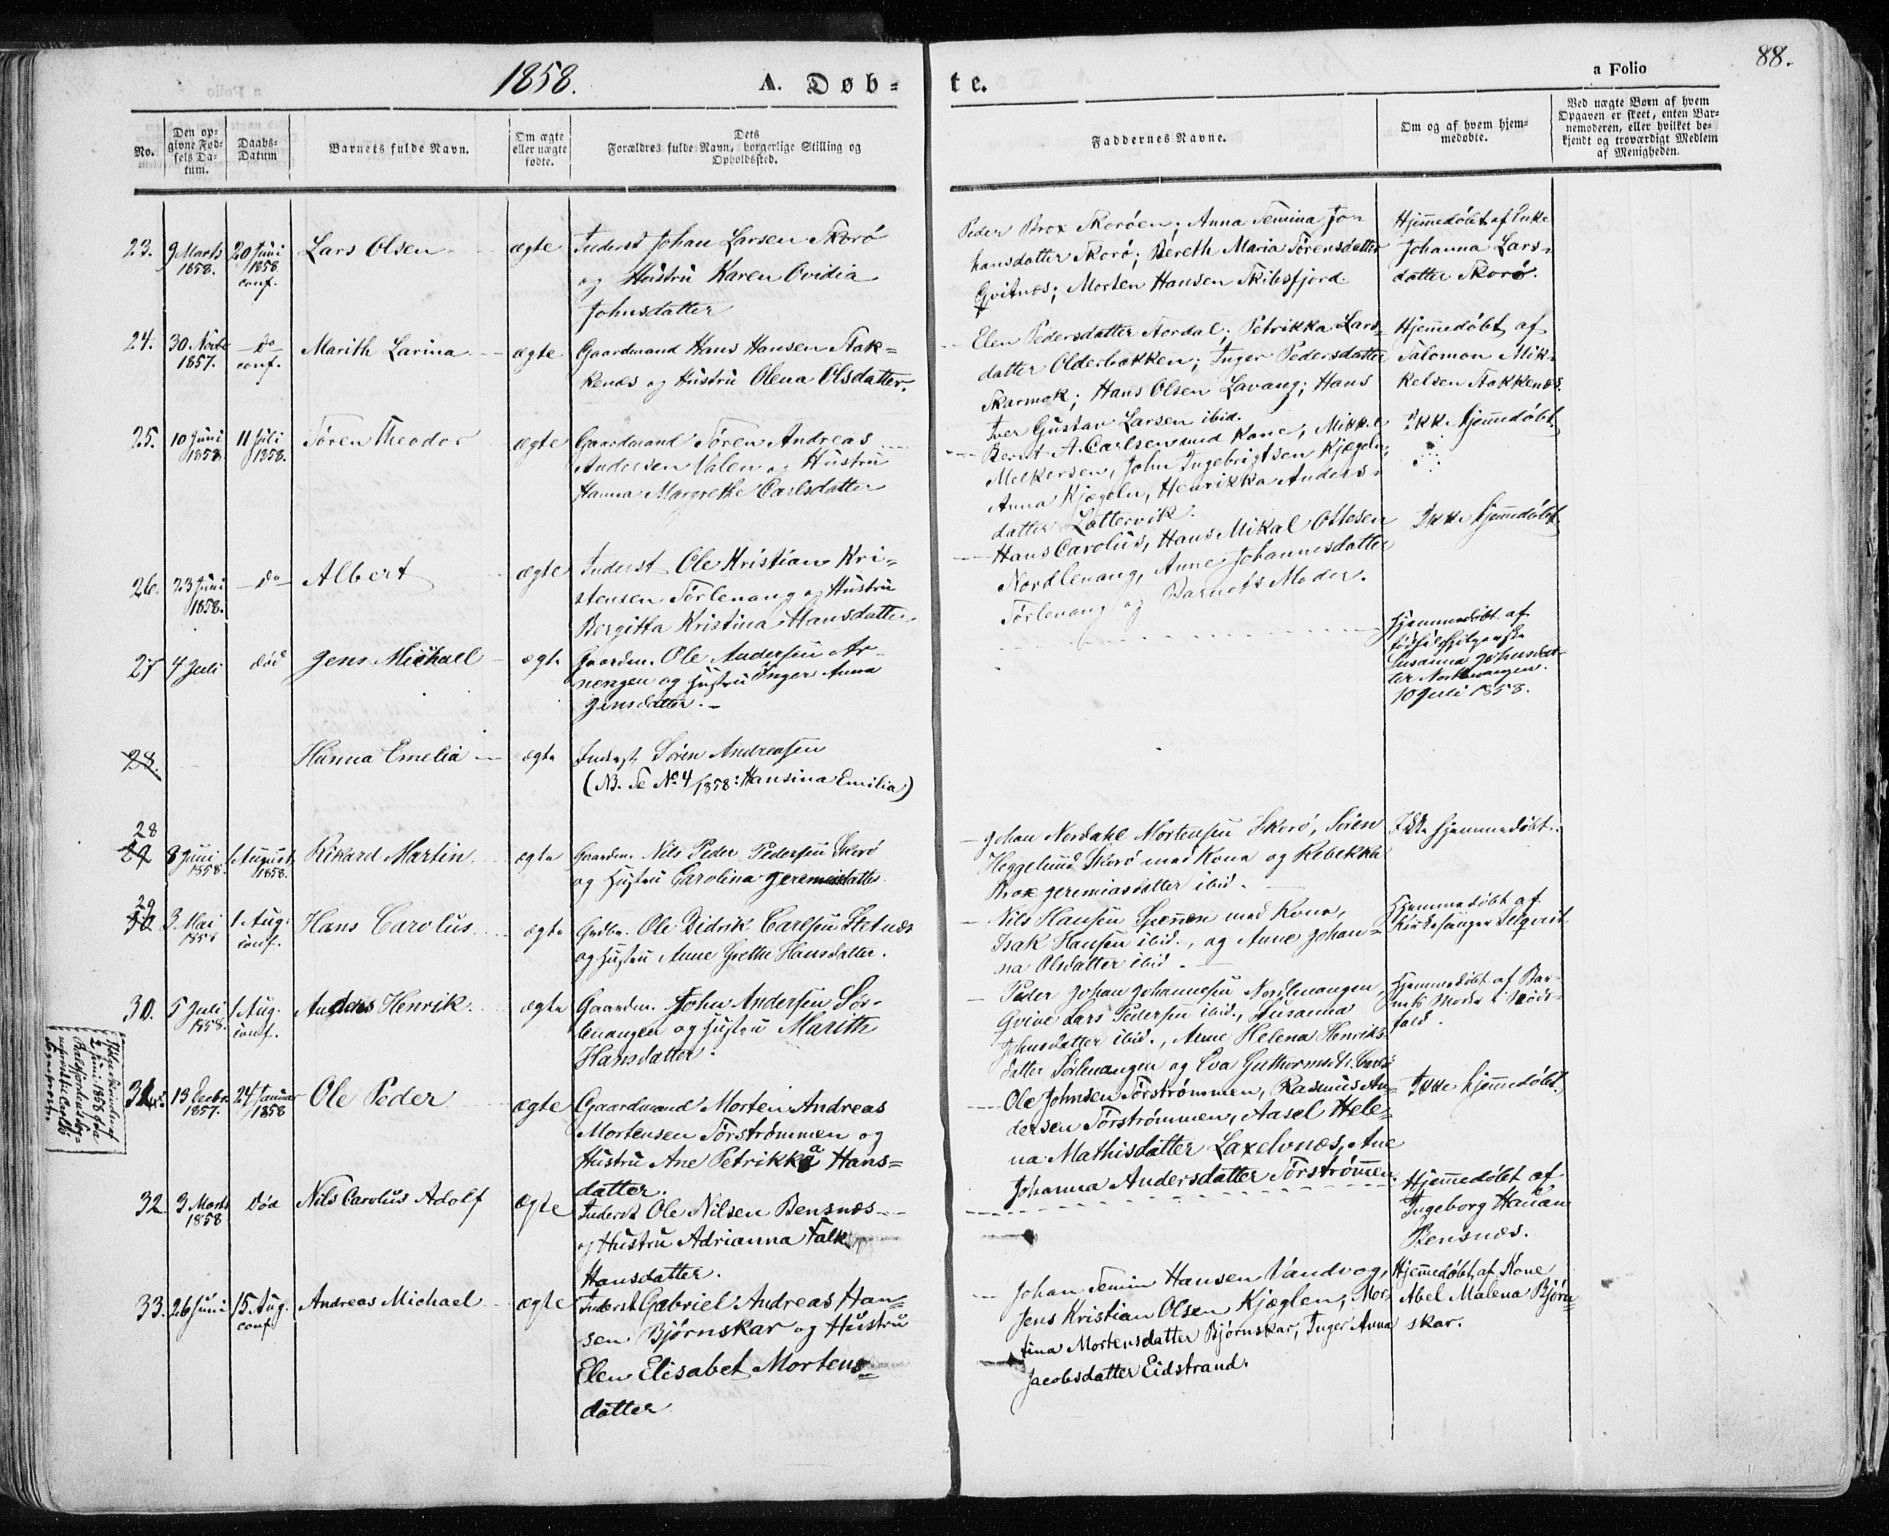 1858.
A. Døb-
te.
a Folio
88.
No.
Den op-
givne Fød-
sels Da-
tum.
Daabs-
Datum
Barnets fulde Navn.
Om ægte
eller uægte
fødte.
Dets
Forældres fulde Navn, borgerlige Stilling og
Opholdssted.
Faddernes Navne.
Om og af hvem hjem-
medøbte.
Ved uægte Børn af hvem
Opgaven er skeet, enten Bar-
nemoderen, eller hvilket be-
kjendt og troværdigt Medlem
af Menigheden.
23.
9 Marts
1858.
20 Juni
1858
conf.
Lars Olsen
ægte
Inderst Johan Larsen Skorø
og Hustru Karen Ovidia
Johnsdatter
Peder Brox Skorøen; Anna Temina Jo-
hansdatter Skorø; Bereth Maria Sørensdatter
Qvitnæs; Morten Hansen Skibsfjord
Hjemmedøbt af Enke
Johanna Lars-
datter Skorø.
24.
30 Novbr
1857.
Do
conf.
Marith Larina
ægte
Gaardmand Hans Hansen Stak-
kenæs og Hustru Olena Olsdatter.
Elen Pedersdatter Nordal; Petrikka Lars-
datter Olderbakken; Inger Pedersdatter
Skarmok; Hans Olsen Lavang; Hans
Iver Gustav Larsen ibid.
Hjemmedøbt af
Salomon Mik-
kelsen Stakkenæs.
25.
10 Juni
1858
11 Juli
1858.
Søren Theodor
ægte
Gaardmand Søren Andreas
Andersen Valen og Hustru
Hanna Margrethe Carlsdatter
Bernt A. Carlsen med Kone, Mikkel
Melkersen, John Ingebrigtsen Kjægeln,
Anna Kjægeln, Henrikka Anders-
datter Lattervik.
Ikke hjemmedøbt
26.
23 Juni
1858.
Do
Albert
ægte
Inderst Ole Kristian Kri-
stensen Sørlenang og Hustru
Bergitta Kristina Hansdatter.
Hans Carolus, Hans Mikal Ottesen
Nordlenang, Anne Johannesdatter
Sørlenang og Barnets Moder.
Ikke hjemmedøbt
27
4 Juli
død
Jens Michael
ægte
Gaardm. Ole Andersen Ar-
nengen og Hustru Inger Anna
Jensdatter.
Hjemmedøbt af
Susanna Johnsdat-
ter Nordlenangen.
10 Juli 1858.
28.
Hanna Emelia
ægte
Inderst Søren Andreasen
(NB. Se No. 4/1858: Hansina Emilia)
28
29
8 Juni
1858.
1 August
1858.
Rikard Martin
ægte
Gaardm. Nils Peder Pedersen Skorø
og Hustru Carolina Jeremiasdatter
Johan Nordahl Mortensen Skorø, Søren
Heggelund Skorø med Kona og Rebekka
Brox Jeremiasdatter ibid.
Ikke hjemmedøbt.
29
30
3 Mai
1858
1 Aug.
conf.
Hans Carolus
ægte
Ole Didrik Carlsen Sletnæs
og Hustru Anne Grethe Hansdatter.
Nils Hansen med Kona,
Isak Hansen ibid., og Anne Johan-
na Olsdatter ibid.
Hjemmedøbt af
Kirkesanger Selqvist
30.
5 Juli
1858.
1 Aug.
conf.
Anders Henrik.
ægte
Gaardm. John Andersen Sør-
lenangen og Hustru Marith
Hansdatter.
Peder Johan Johannesen Nordlenangen,
Lars Pedersen ibid., Susanna
Johnsdatter ibid., Anne Helena Henriks-
datter Sørlenangen og Eva Guthormsd.
Hjemmedøbt af Bar-
nets Moder i Nøds-
fald.
31
13 Decbr.
1857.
24 Januar
1858
Ole Peder
ægte
Gaardmand Morten Andreas
Mortensen Sørstrømmen og
Hustru Ane Petrikka Hans-
datter.
Ole Johnsen Sørstrømmen, Rasmus An-
dersen Sørstrømmen, Aasel Hele-
na Mathisdatter Laxelvnæs, Ane
Johanna Andersdatter Sørstrømmen.
Ikke hjemmedøbt.
32
3 Marts
1858
Død
Nils Carolus Adolf
ægte
Inderst Ole Nilsen Bensnæs
og Hustru Adrianna Falk
Hansdatter.
Hjemmedøbt af
Ingeborg Hauan
Bensnæs.
33.
26 Juni
15 Aug.
conf.
Andreas Michael
ægte
Inderst Gabriel Andreas Han-
sen Bjørnskar og Hustru
Elen Elisabet Mortens-
datter
Johan Temin Hansen Vandvog,
Jens Kristian Olsen Kjæglen, Mor-
tina Mortensdatter Bjørnskar, Inger Anna
Jacobsdatter Eidstrand.
Hjemmedøbt af Kone
Abel Malena Bjørn-
skar.